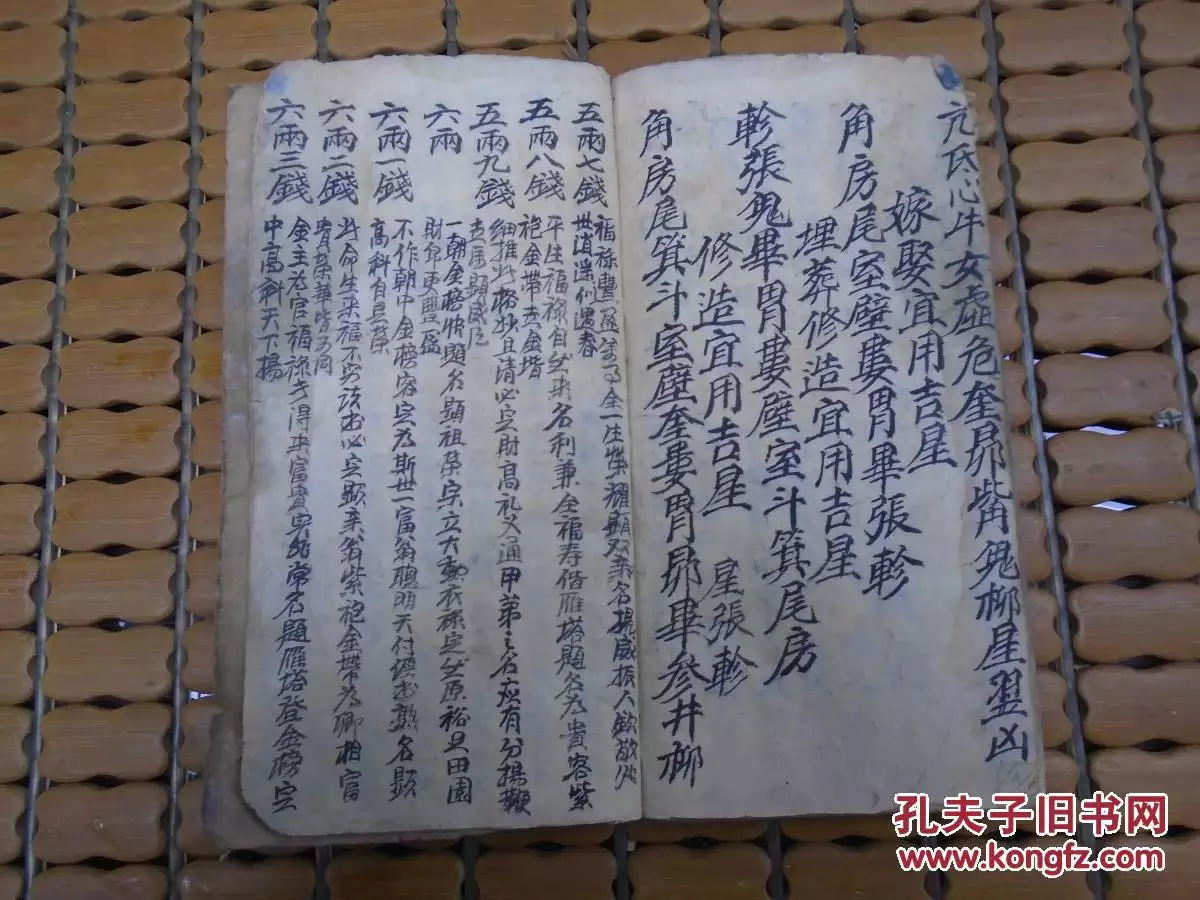 亢氐心牛女虛危奎昴觜角鬼柳星翌凶
嫁娶宜用吉星
角房尾室壁婁胃畢張軫
埋葬修造宜用吉星
軫張鬼畢胃婁壁室斗箕尾房
修造宜用吉星 星張軫
角房尾箕斗室壁奎婁胃昴畢參井柳
五兩七錢
福祿豐盈萬事全一生榮耀顯双親名揚威振人欽敬處
世逍遙似遇春
五兩八錢
平生福祿自然來名利兼全福寿偕雁塔題名為貴客紫
袍金帶走金堦
五兩九錢
細推此格妙且清必定財高礼义通甲第之名应有分揚鞭
走馬顯威
六兩
一朝金榜快題名顯祖榮宗立大勳衣祿定然原裕足田園
財帛更豐盈
六兩一錢
不作朝中金榜客定為斯世一富翁聰明天付經書熟名顯
高科自是榮
六兩二錢
此命生來福不窮读书必定顯亲翁紫袍金帶為卿相富
貴榮華皆可同
六兩三錢
金主為官福祿方得來富貴定非常名題雁塔登金榜定
中高科天下揚
孔夫子旧书网
www.kongfz.com